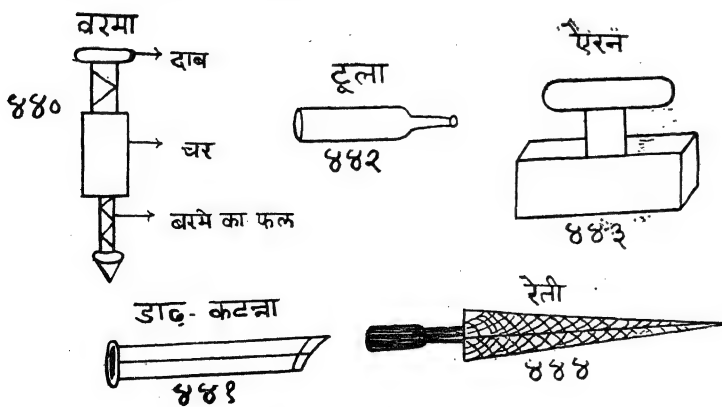 वरमा
दाब
४४०
चर
बरमे का फल
टूला
४४२
ऐरन
४४३
डाढ़-कटन्ना
४४१
रेती
४४४